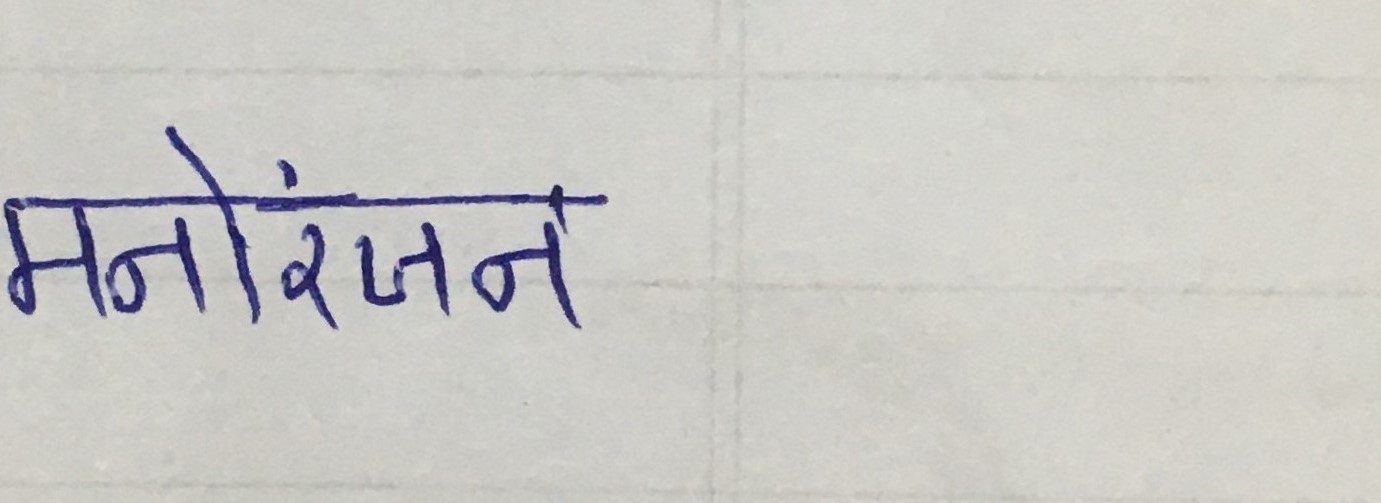 मनोरंजन